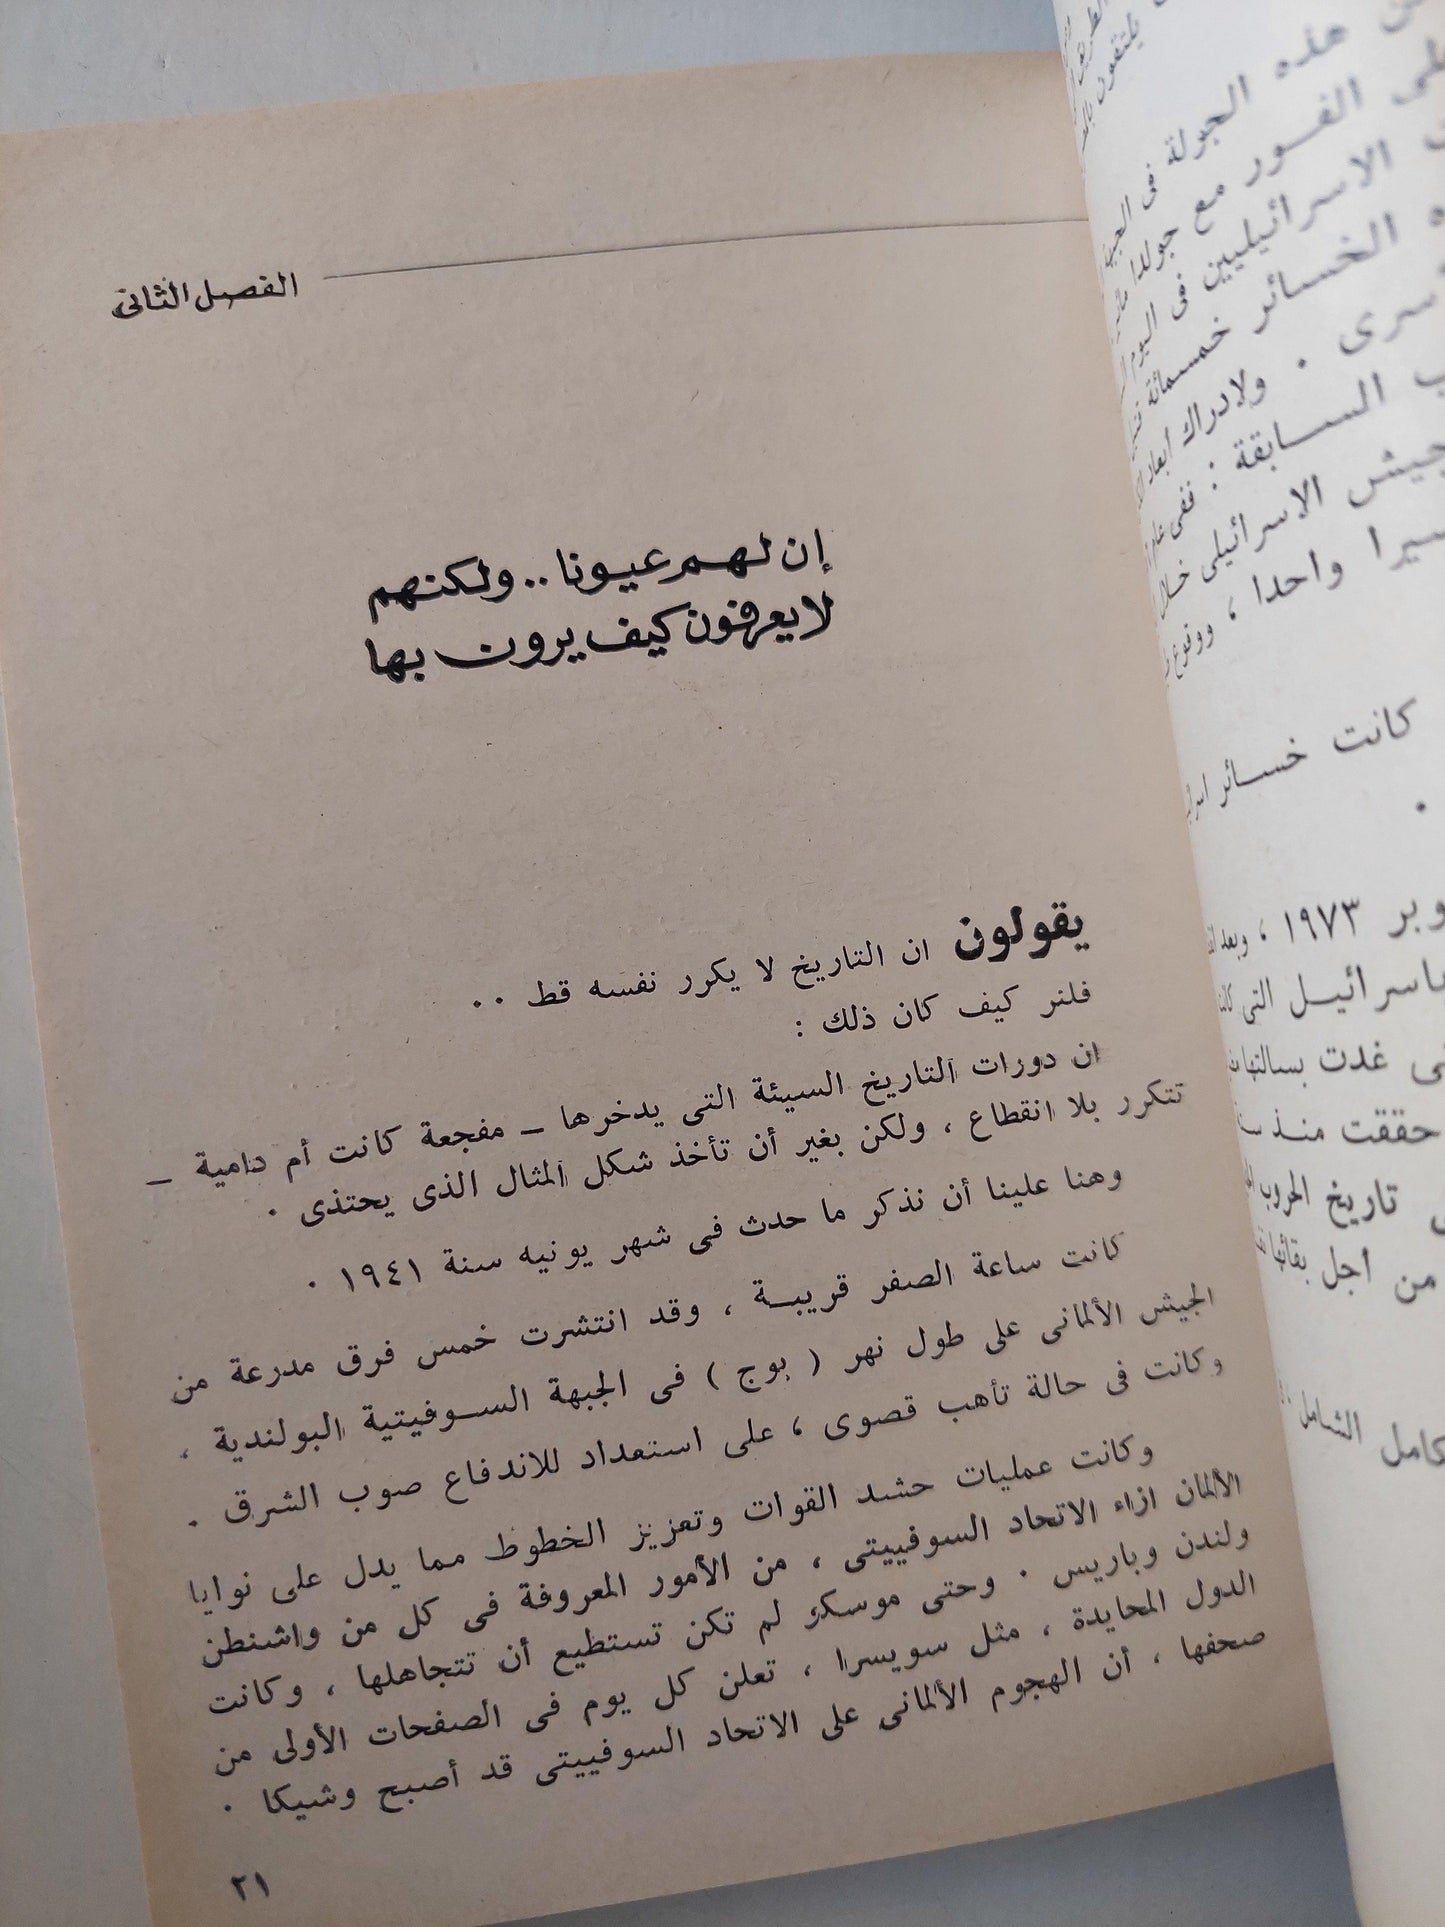 الفصل الثانى
إن لهم عيونا .. ولكنهم
لا يعرفون كيف يرون بها
يقولون ان التاريخ لا يكرر نفسه قط ..
فلنر كيف كان ذلك :
ان دورات التاريخ السيئة التى يدخرها – مفجعة كانت أم دامية –
تتكرر بلا انقطاع ، ولكن بغير أن تأخذ شكل المثال الذى يحتذى .
وهنا علينا أن نذكر ما حدث فى شهر يونيه سنة ١٩٤١ .
كانت ساعة الصفر قريبة ، وقد انتشرت خمس فرق مدرعة من
الجيش الألمانى على طول نهر ( بوج ) فى الجبهة السوفيتية البولندية ،
وكانت فى حالة تأهب قصوى ، على استعداد للاندفاع صوب الشرق .
وكانت عمليات حشد القوات وتعزيز الخطوط مما يدل على نوايا
الألمان ازاء الاتحاد السوفييتى ، من الأمور المعروفة فى كل من واشنطن
ولندن وباريس . وحتى موسكو لم تكن تستطيع أن تتجاهلها ، وكانت
الدول المحايدة ، مثل سويسرا ، تعلن كل يوم فى الصفحات الأولى من
صحفها ، أن الهجوم الألمانى على الاتحاد السوفييتى قد أصبح وشيكا .
٢١
هذه الجولة فى
الفور مع جولدا
الاسرائيليين فى اليوم
الخسائر خمسمائة
. ولادراك ابعاد
السابقة : ففى
الاسرائيلى خلال
واحدا ، ووقوع
كانت خسائر
١٩٧٣ ، وبعد
التى
غدت بسالتها
حققت منذ
تاريخ الحروب
من أجل بقائها
الشامل